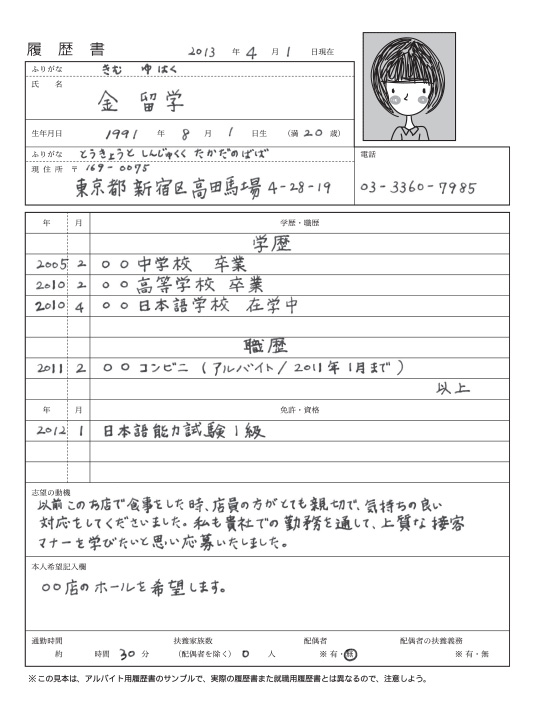 履歴書 2013 年 4 月 1 日現在
ふりがな きむ ゆはく
氏 名 金 留学
生年月日 1991 年 8 月 1 日生 (満 20 歳)
ふりがな とうきょうと しんじゅくく たかだのばば
電話
現住所 〒 169-0075
東京都 新宿区高田馬場 4-28-19
03-3360-7985
年 月 学歴・職歴
学歴
2005 2 ○○中学校 卒業
2010 2 ○○高等学校 卒業
2010 4 ○○日本語学校 在学中
職歴
2011 2 ○○コンビニ (アルバイト/2011年1月まで)
以上
年 月 免許・資格
2012 1 日本語能力試験1級
志望の動機
以前このお店で食事をした時、店員の方がとても親切で、気持ちの良い
対応をしてくださいました。私も貴社での勤務を通して、上質な接客
マナーを学びたいと思い応募いたしました。
本人希望記入欄
○○店のホールを希望します。
通勤時間 扶養家族数 配偶者 配偶者の扶養義務
約 時間 30 分 (配偶者を除く) 0 人 ※有・無 ※有・無
※この見本は、アルバイト用履歴書のサンプルで、実際の履歴書または就職用履歴書とは異なるので、注意しよう。